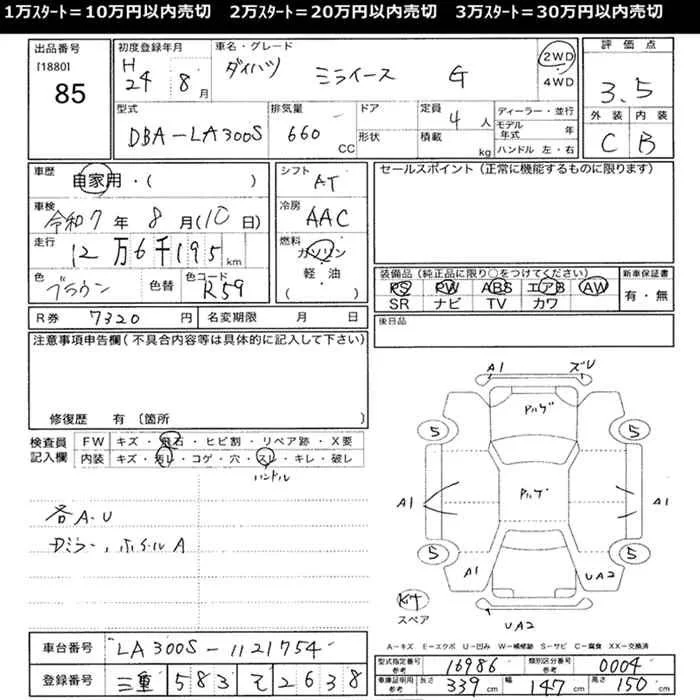 1万ｽﾀｰﾄ＝10万円以内売切　2万ｽﾀｰﾄ＝20万円以内売切　3万ｽﾀｰﾄ＝30万円以内売切
出品番号 [1880] 85
初度登録年月 H24 8月
車名・グレード ダイハツ ミライース G
2WD 4WD
評価点 3.5
外装 内装
C B
型式 DBA-LA300S
排気量 660 CC
ドア 形状
定員 4人
積載 kg
ディーラー・並行
モデル年式 年
ハンドル 左・右
車歴 自家用・( )
車検 令和7年8月(10日)
走行 12万6千195km
色 ブラウン 色替 色コード R59
シフト AT
冷房 AAC
燃料 ガソリン 軽・油 ( )
セールスポイント (正常に機能するものに限ります)
装備品 (純正品に限り○をつけてください)
PS PW ABS エアB AW
SR ナビ TV カワ
新車保証書 有・無
R券 7320円 名変期限 月 日
後日品
注意事項申告欄 (不具合内容等は具体的に記入して下さい)
修復歴 有 〔箇所
検査員記入欄
FW キズ・飛石・ヒビ割・リペア跡・X要
内装 キズ・汚レ・コゲ・穴・スレ・キレ・破レ
ハンドル
各A-U
Dミラー,ホイールA
A1 ズU
アルゲ
5 5
アルゲ
A1 A1
5 5
A1 UA2
kit
スペア
UA2
A-キズ E-エクボ U-凹み W-補修跡 S-サビ C-腐食 XX-交換済
車台番号 LA300S-1121754
登録番号 三重 583 そ 2638
型式指定番号 参考 16986 類別区分番号 参考 0004
車庫証明用 参考 長さ 339cm 幅 147cm 高さ 150cm